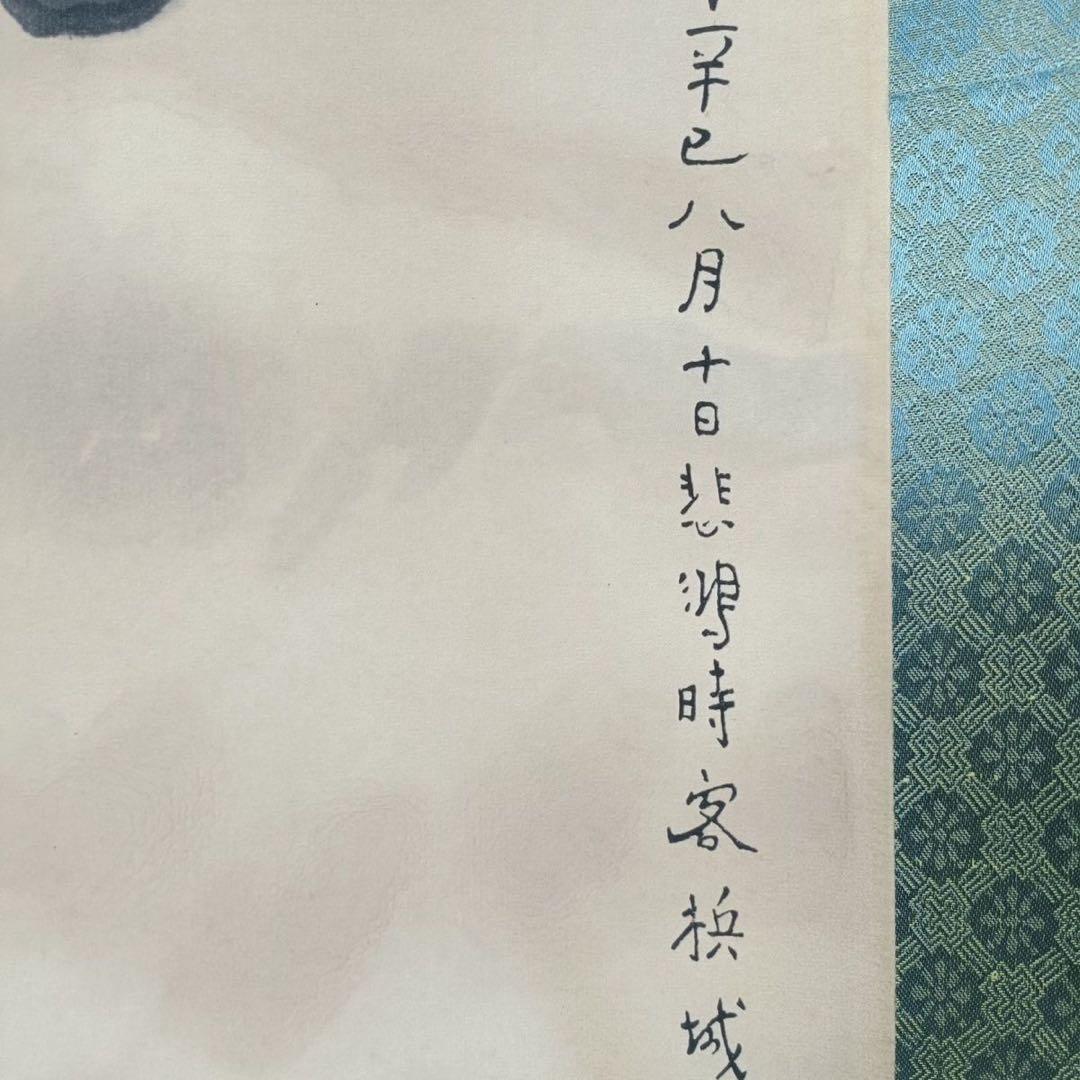 辛巳八月十日悲鴻時客梹城